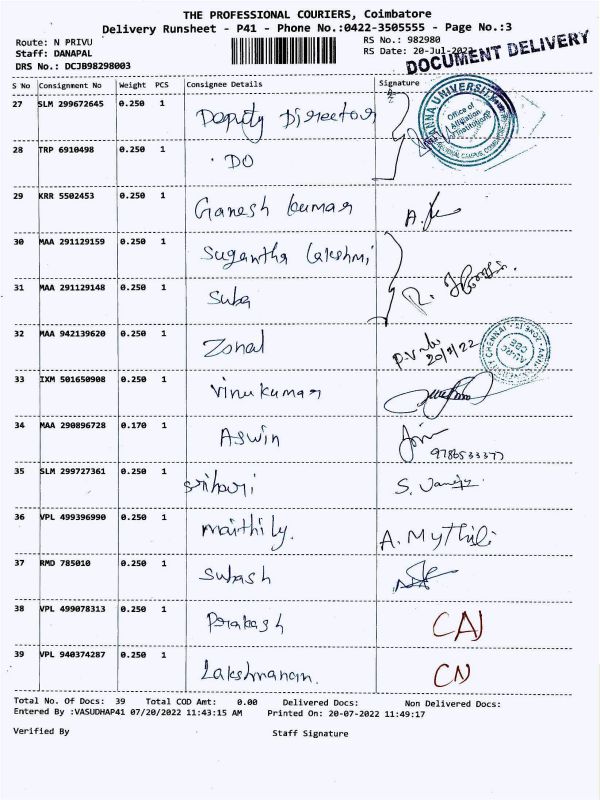 THE PROFESSIONAL COURIERS, Coimbatore
Delivery Runsheet - P41 - Phone No.:0422-3505555 - Page No.:3
Route: N PRIVU
RS No.: 982980
Staff: DANAPAL
RS Date: 20-Jul-2022
DRS No.: DCJB98298003
DOCUMENT DELIVERY
S No Consignment No Weight PCS Consignee Details Signature
27 SLM 299672645 0.250 1 Deputy Director
ANNA UNIVERSITY
Office of
Affiliation
28 TRP 6910498 0.250 1 DO
29 KRR 5502453 0.250 1 Ganesh kumar
30 MAA 291129159 0.250 1 Sugantha Lakshmi
31 MAA 291129148 0.250 1 Suba R.
32 MAA 942139620 0.250 1 Zonal 20/7/22
33 IXM 501650908 0.250 1 Vinukumar
34 MAA 290896728 0.170 1 Aswin
9786533377
35 SLM 299727361 0.250 1 Srihari S.
36 VPL 499396990 0.250 1 Maithily. A. Mythili
37 RMD 785010 0.250 1 Subash
38 VPL 499078313 0.250 1 Prakash
39 VPL 940374287 0.250 1 Lakshmanan. CN
Total No. Of Docs: 39 Total COD Amt: 0.00 Delivered Docs: Non Delivered Docs:
Entered By :VASUDHAP41 07/20/2022 11:43:15 AM Printed On: 20-07-2022 11:49:17
Verified By Staff Signature